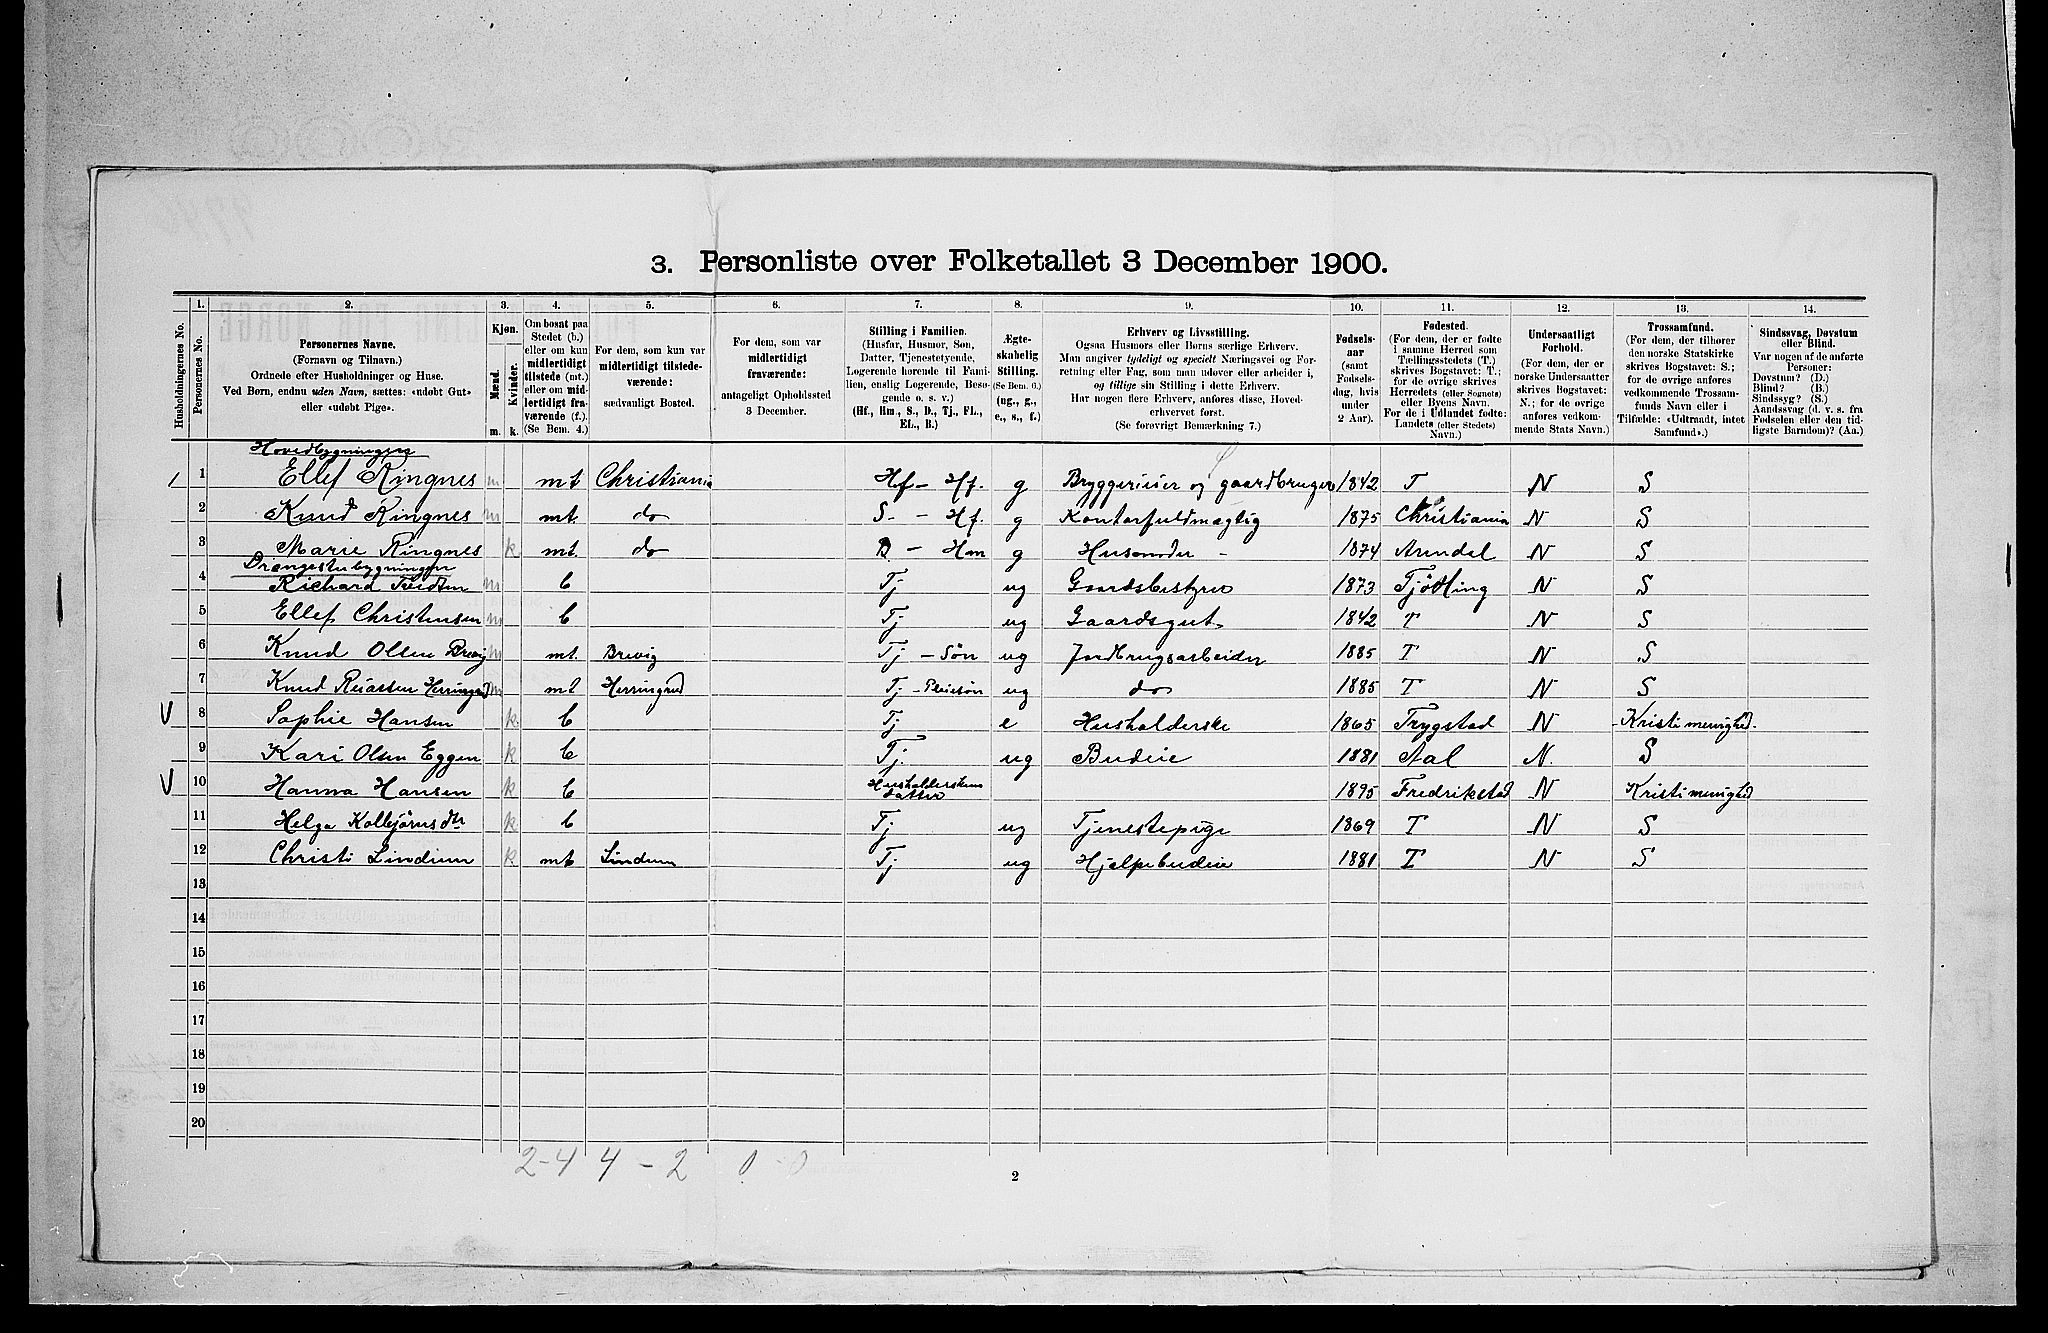 3. Personliste over Folketallet 3 December 1900.
Husholdningernes No.
1.
Personernes No.
2.
Personernes Navne.
(Fornavn og Tilnavn.)
Ordnede efter Husholdninger og Huse.
Ved Børn, endnu uden Navn, sættes: «udøbt Gut»
eller «udøbt Pige».
3.
Kjøn.
Mænd.
Kvinder.
m. k.
4.
Om bosat paa
Stedet (b.)
eller om kun
midlertidigt
tilstede (mt.)
eller om mid-
lertidigt fra-
værende (f.)
(Se Bem. 4.)
5.
For dem, som kun var
midlertidigt tilstede-
værende:
sædvanligt Bosted.
6.
For dem, som var
midlertidigt
fraværende:
antageligt Opholdssted
3 December.
7.
Stilling i Familien.
(Husfar, Husmor, Søn,
Datter, Tjenestetyende,
Logerende hørende til Fami-
lien, enslig Logerende, Besø-
gende o. s. v.)
(Hf., Hm., S., D., Tj., FL.,
EL., B.)
8.
Ægte-
skabelig
Stilling.
(Se Bem. 6.)
(ug., g.,
e., s., f.)
9.
Erhverv og Livsstilling.
Ogsaa Husmors eller Børns særlige Erhverv.
Man angiver tydeligt og specielt Næringsvei og For-
retning eller Fag, som man udøver eller arbeider i,
og tillige sin Stilling i dette Erhverv.
Har nogen flere Erhverv, anføres disse, Hoved-
erhvervet først.
(Se forøvrigt Bemærkning 7.)
10.
Fødsels-
aar
(samt
Fødsels-
dag, hvis
under
2 Aar).
11.
Fødested.
(For dem, der er fødte
i samme Herred som
Tællingsstedets (T.)
skrives Bogstavet: T.;
for de øvrige skrives
Herredets (eller Sognets)
eller Byens Navn.
For de i Udlandet fødte:
Landets (eller Stedets)
Navn.)
12.
Undersaatligt
Forhold.
(For dem, der er
norske Undersaatter
skrives Bogstavet:
N.; for de øvrige
anføres vedkom-
mende Stats Navn.)
13.
Trossamfund.
(For dem, der tilhører
den norske Statskirke
skrives Bogstavet: S.;
for de øvrige anføres
vedkommende Trossam-
funds Navn eller i
Tilfælde: «Udtraadt, intet
Samfund».)
14.
Sindssvag, Døvstum
eller Blind.
Var nogen af de anførte
Personer:
Døvstum? (D.)
Blind? (B.)
Sindssyg? (S.)
Aandssvag (d. v. s. fra
Fødselen eller den tid-
ligste Barndom)? (Aa.)
Hovedbygningen
1 Ellef Ringnes m mt Christiania Hf - Hf. g Bryggerieier og gaardbruger 1842 T N S
2 Knud Ringnes m mt. do S. - Hf. g Kontorfuldmægtig 1875 Christiania N S
3 Marie Ringnes k mt. do B - Hm g Husmoder - 1874 Arendal N S
Drengestubygningen
4 Richard m b Tj ug Gaardsbestyrer 1873 Tjødling N S
5 Ellef Christensen m b Tj ug Gaardsgut 1842 T N S
6 Knud Olsen Brevig m mt. Brevig Tj - Søn ug Jordbrugsarbeider 1885 T N S
7 Knud Herringrud m mt Herringrud Tj - Pleiesøn ug do 1885 T N S
V 8 Sophie Hansen k. b Tj e Husholderske 1865 Trygstad N Kristi menighed.
9 Kari Olsen Eggen k b Tj. ug Budeie 1881 Aal N. S
V 10 Hanna Hansen k b Husholderskens datter 1895 Fredrikstad N Kristi menighed
11 Helga Kolbjørnsdtr k b Tj ug Tjenestepige 1869 T N S
12 Christi Lindium k mt Lindum Tj ug Hjelpebudeie 1881 T N S
13
14
15
16
17
18
19
20
2-4 4-2 0-0
2